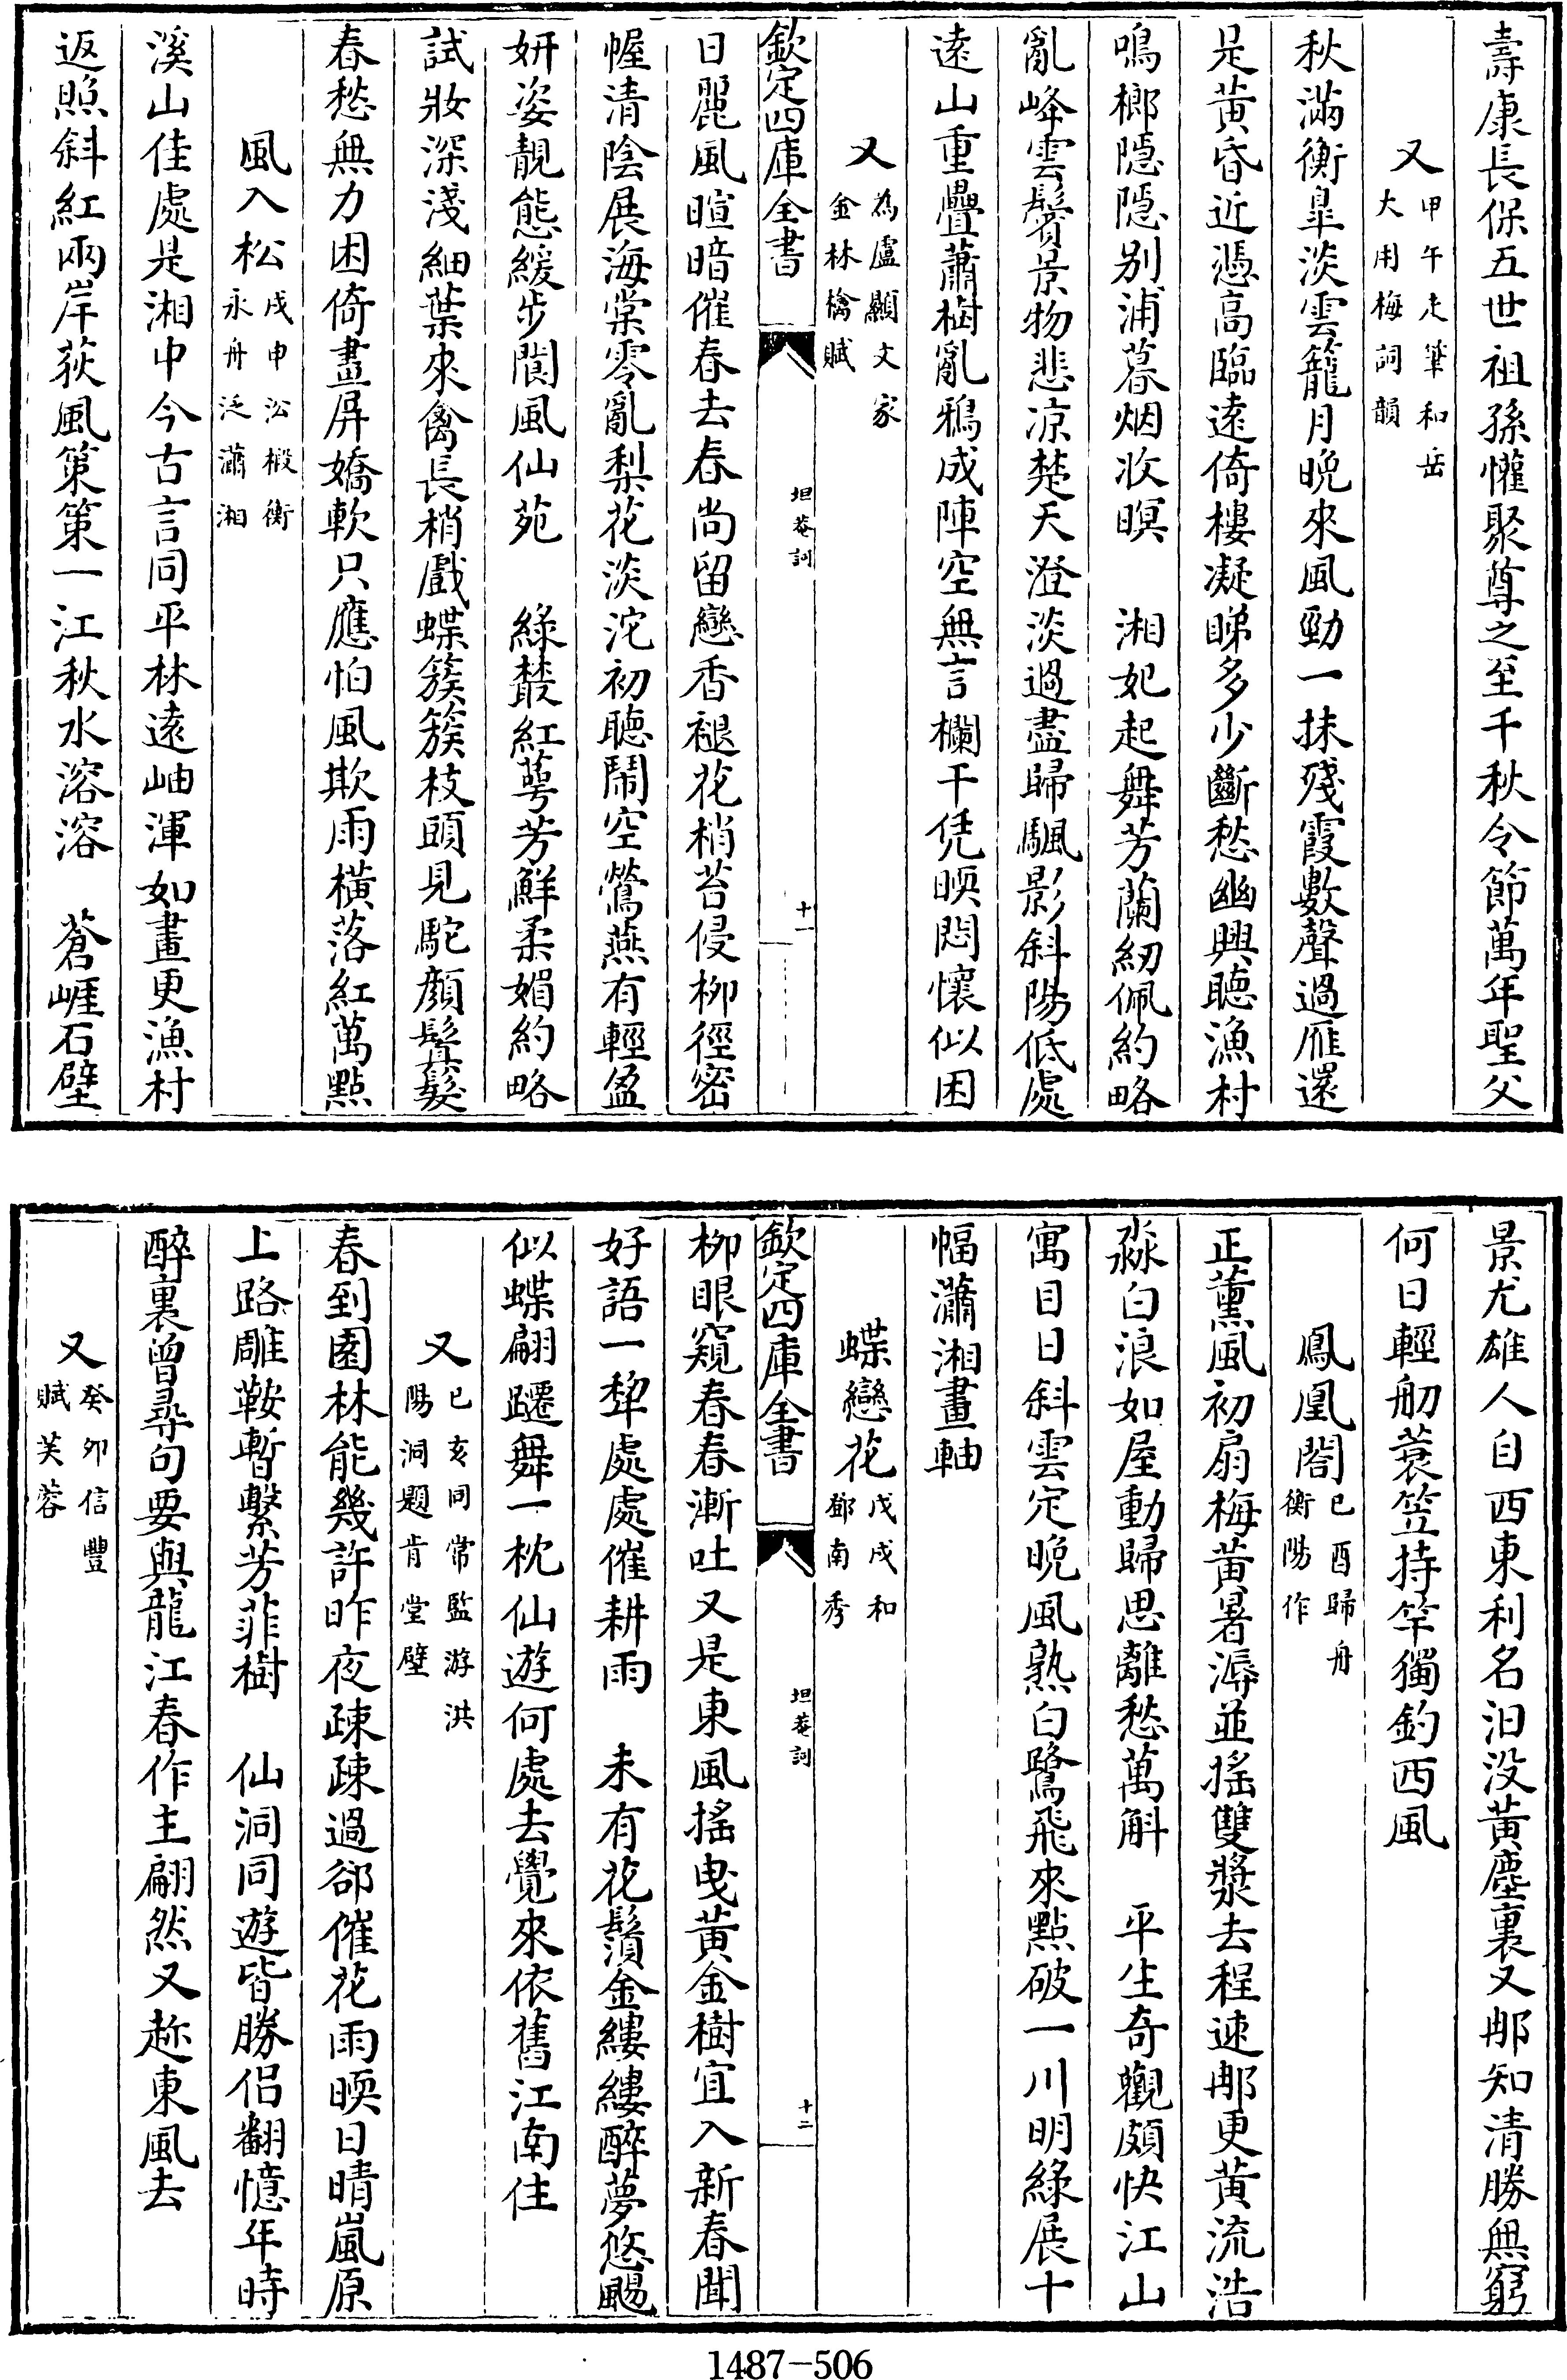 壽康長保五世祖孫懽聚尊之至千秋令節萬年聖父
又甲午走筆和岳
大用梅詞韻
秋滿衡皐淡雲籠月晩來風勁一抹殘霞數聲過雁還
是黄昏近憑高臨逺倚樓凝睇多少斷愁幽興聽漁村
鳴榔隠隠别浦暮烟收暝　湘妃起舞芳蘭紉佩約略
亂峰雲鬟景物悲凉楚天澄淡過盡歸颿影斜陽低處
逺山重疊蕭樹亂鴉成陣空無言欄干凭暎悶懷似困
又為盧顯文家
金林檎賦
欽定四庫全書
坦菴詞
十一
日麗風暄暗催春去春尚留戀香褪花梢苔侵栁徑密
幄清陰展海棠零亂梨花淡沱初聽鬧空鶯燕有輕盈
妍姿靚態緩步閬風仙苑　綠叢紅萼芳鮮柔媚約略
試妝深淺細葉來禽長梢戲蝶簇簇枝頭見駝顔鬒髮
春愁無力困倚畫屏嬌軟只應怕風欺雨橫落紅萬點
風入松戊申沿檄衡
永舟泛瀟湘
溪山佳處是湘中今古言同平林逺岫渾如畫更漁村
返照斜紅兩岸荻風策策一江秋水溶溶　蒼崕石壁
景尤雄人自西東利名汩没黄塵裏又那知清勝無窮
何日輕舠蓑笠持竿獨釣西風
鳳凰閣己酉歸舟
衡陽作
正薫風初扇梅黄暑溽並搖雙槳去程速那更黄流浩
淼白浪如屋動歸思離愁萬斛　平生奇觀頗快江山
寓目日斜雲定晩風熟白鷺飛來點破一川明綠展十
幅瀟湘畫軸
蝶戀花戊戌和
鄧南秀
欽定四庫全書
坦菴詞
十二
栁眼窺春春漸吐又是東風搖曳黄金樹宜入新春聞
好語一犂處處催耕雨　未有花鬚金縷縷醉夢悠颺
似蝶翩躚舞一枕仙遊何處去覺來依舊江南住
又己亥同常監游洪
陽洞題肯堂壁
春到園林能幾許昨夜疎疎過卻催花雨暎日晴嵐原
上路雕鞍暫繫芳菲樹　仙洞同遊皆勝侣翻憶年時
醉裏曾尋句要與龍江春作主翩然又趂東風去
又癸夘信豐
賦芙蓉
1487－506